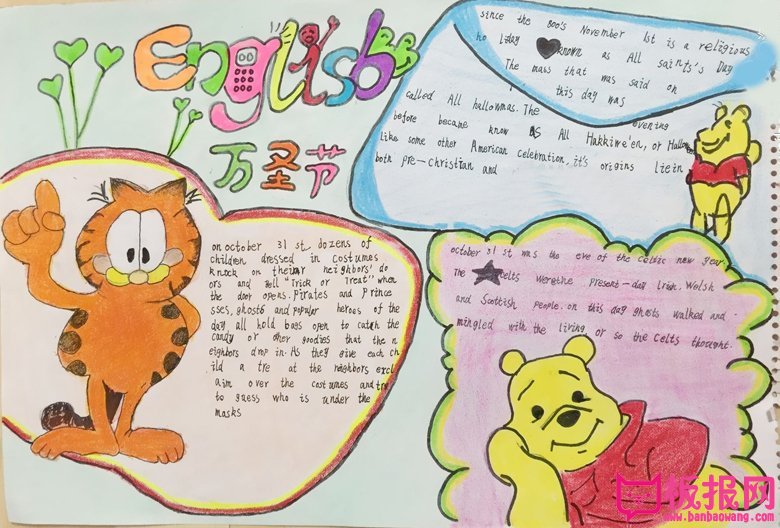 English
万圣节
since the 800's November 1st is a religious
holiday known as All saints's Day
The mass that was said on
this day was
called All hallowmas. The evening
before became know as All Hakkiwe'en, or Hallow
like some other American celebration, it's origins lie in
both pre-christian and
on october 31 st dozens of
children dressed in costumes
knock on their neighbors' do
ors and yell "Trick or Treat" when
the door opens. Pirates and prince
sses, ghosts and popular heroes of the
day all hold bags open to catch the
candy or other goodies that the n
eighbors drop in. As they give each ch
ild a tre at the neighbors excl
aim over the costumes and try
to guess who is under the
masks
october 31 st was the eve of the celtic new year.
The celts werethe present-day Irish, Welsh
and Scottish people. on this day ghosts walked and
mingled with the living or so the celts thought.
板报网
www.banbaowang.com